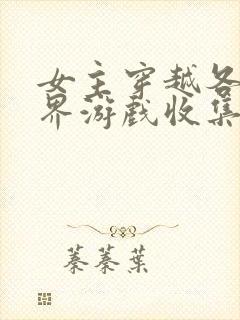 女主穿越各
界游戏收集
蓁蓁葉